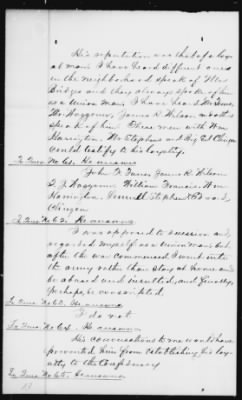 His reputation was that of a loy-
al man. I have heard different ones
in the neighborhood speak of Mr
Bridges and they always speak of him
as a Union man. I have heard Mr Turner
Mr James R. Wilson &
speak of him. These men with Wm
Harington, Mr Stephens and
could testify to his loyalty.
To Ques No 61. He answers
John F. Turner James R. Wilson
S. J. William Francis Wm
Harington, Stephens
To Ques No 62. He answers
I was opposed to secession and
regarded myself as a Union man but
after the war commenced I went into
the army rather than stay at home and
be abused and insulted, and finally,
perhaps, be conscripted.
To Ques No 63. He answers
I do not
To Ques No 64. He answers
His conversations to me would have
prevented him from establishing his loy-
alty to the Confederacy
To Ques No 65. He answers